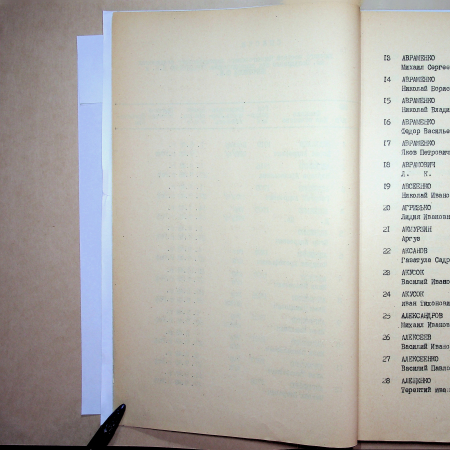 13 АВРАМЕНКО
Михаил Серге
14 АВРАМЕНКО
Николай Борис
15 АВРАМЕНКО
Николай Влади
16 АВРАМЕНКО
Федор Василье
17 АВРАМЕНКО
Яков Петрович
18 АВРАМОВИЧ
Л. К.
19 АВСЕЕНКО
Николай Ивано
20 АГРИЗЬКО
Лидия Ивановн
21 АКМУРЗИН
Аргув
22 АКСАНОВ
Газатула Садр
23 АКУСОК
Василий Ивано
24 АКУСОК
иван тихонови
25 АЛЕКСАНДРОВ
Михаил Ивано
26 АЛЕКСЕЕВ
Василий Ивано
27 АЛЕКСЕЕНКО
Василий Павло
28 АЛЕЩЕНКО
Терентий ива